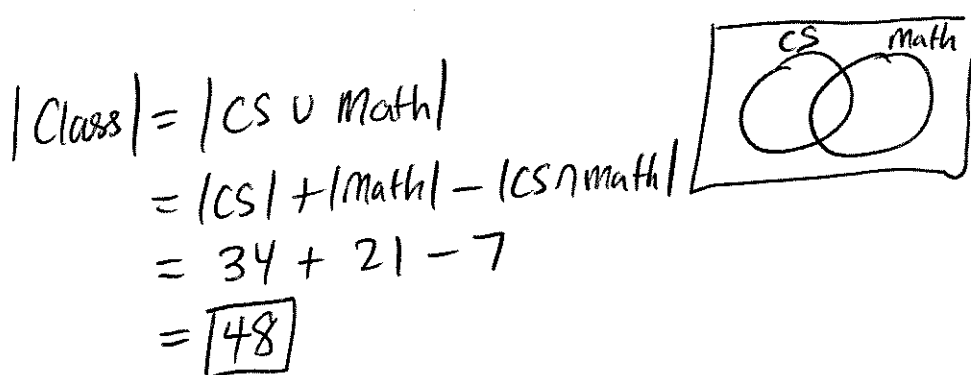 CS Math
|Class| = |CS ∪ Math|
= |CS| + |Math| − |CS ∩ math|
= 34 + 21 − 7
= 48